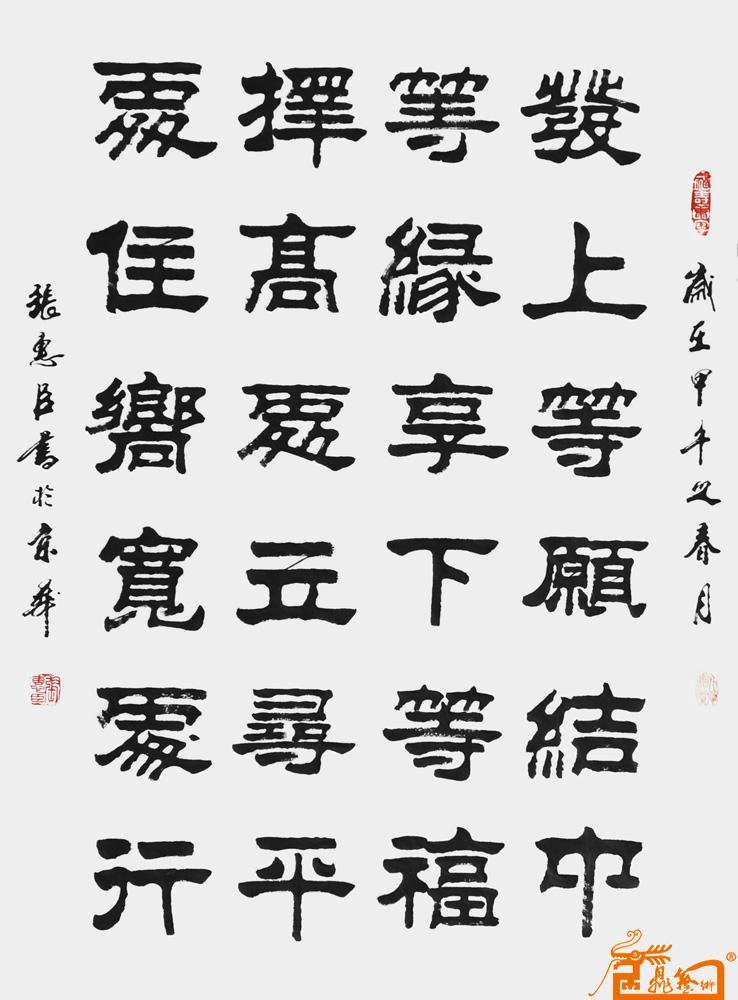 歲在甲午之春月
發上等願結中
等緣享下等福
擇高處立尋平
處住嚮寬處行
張惠臣書於京華